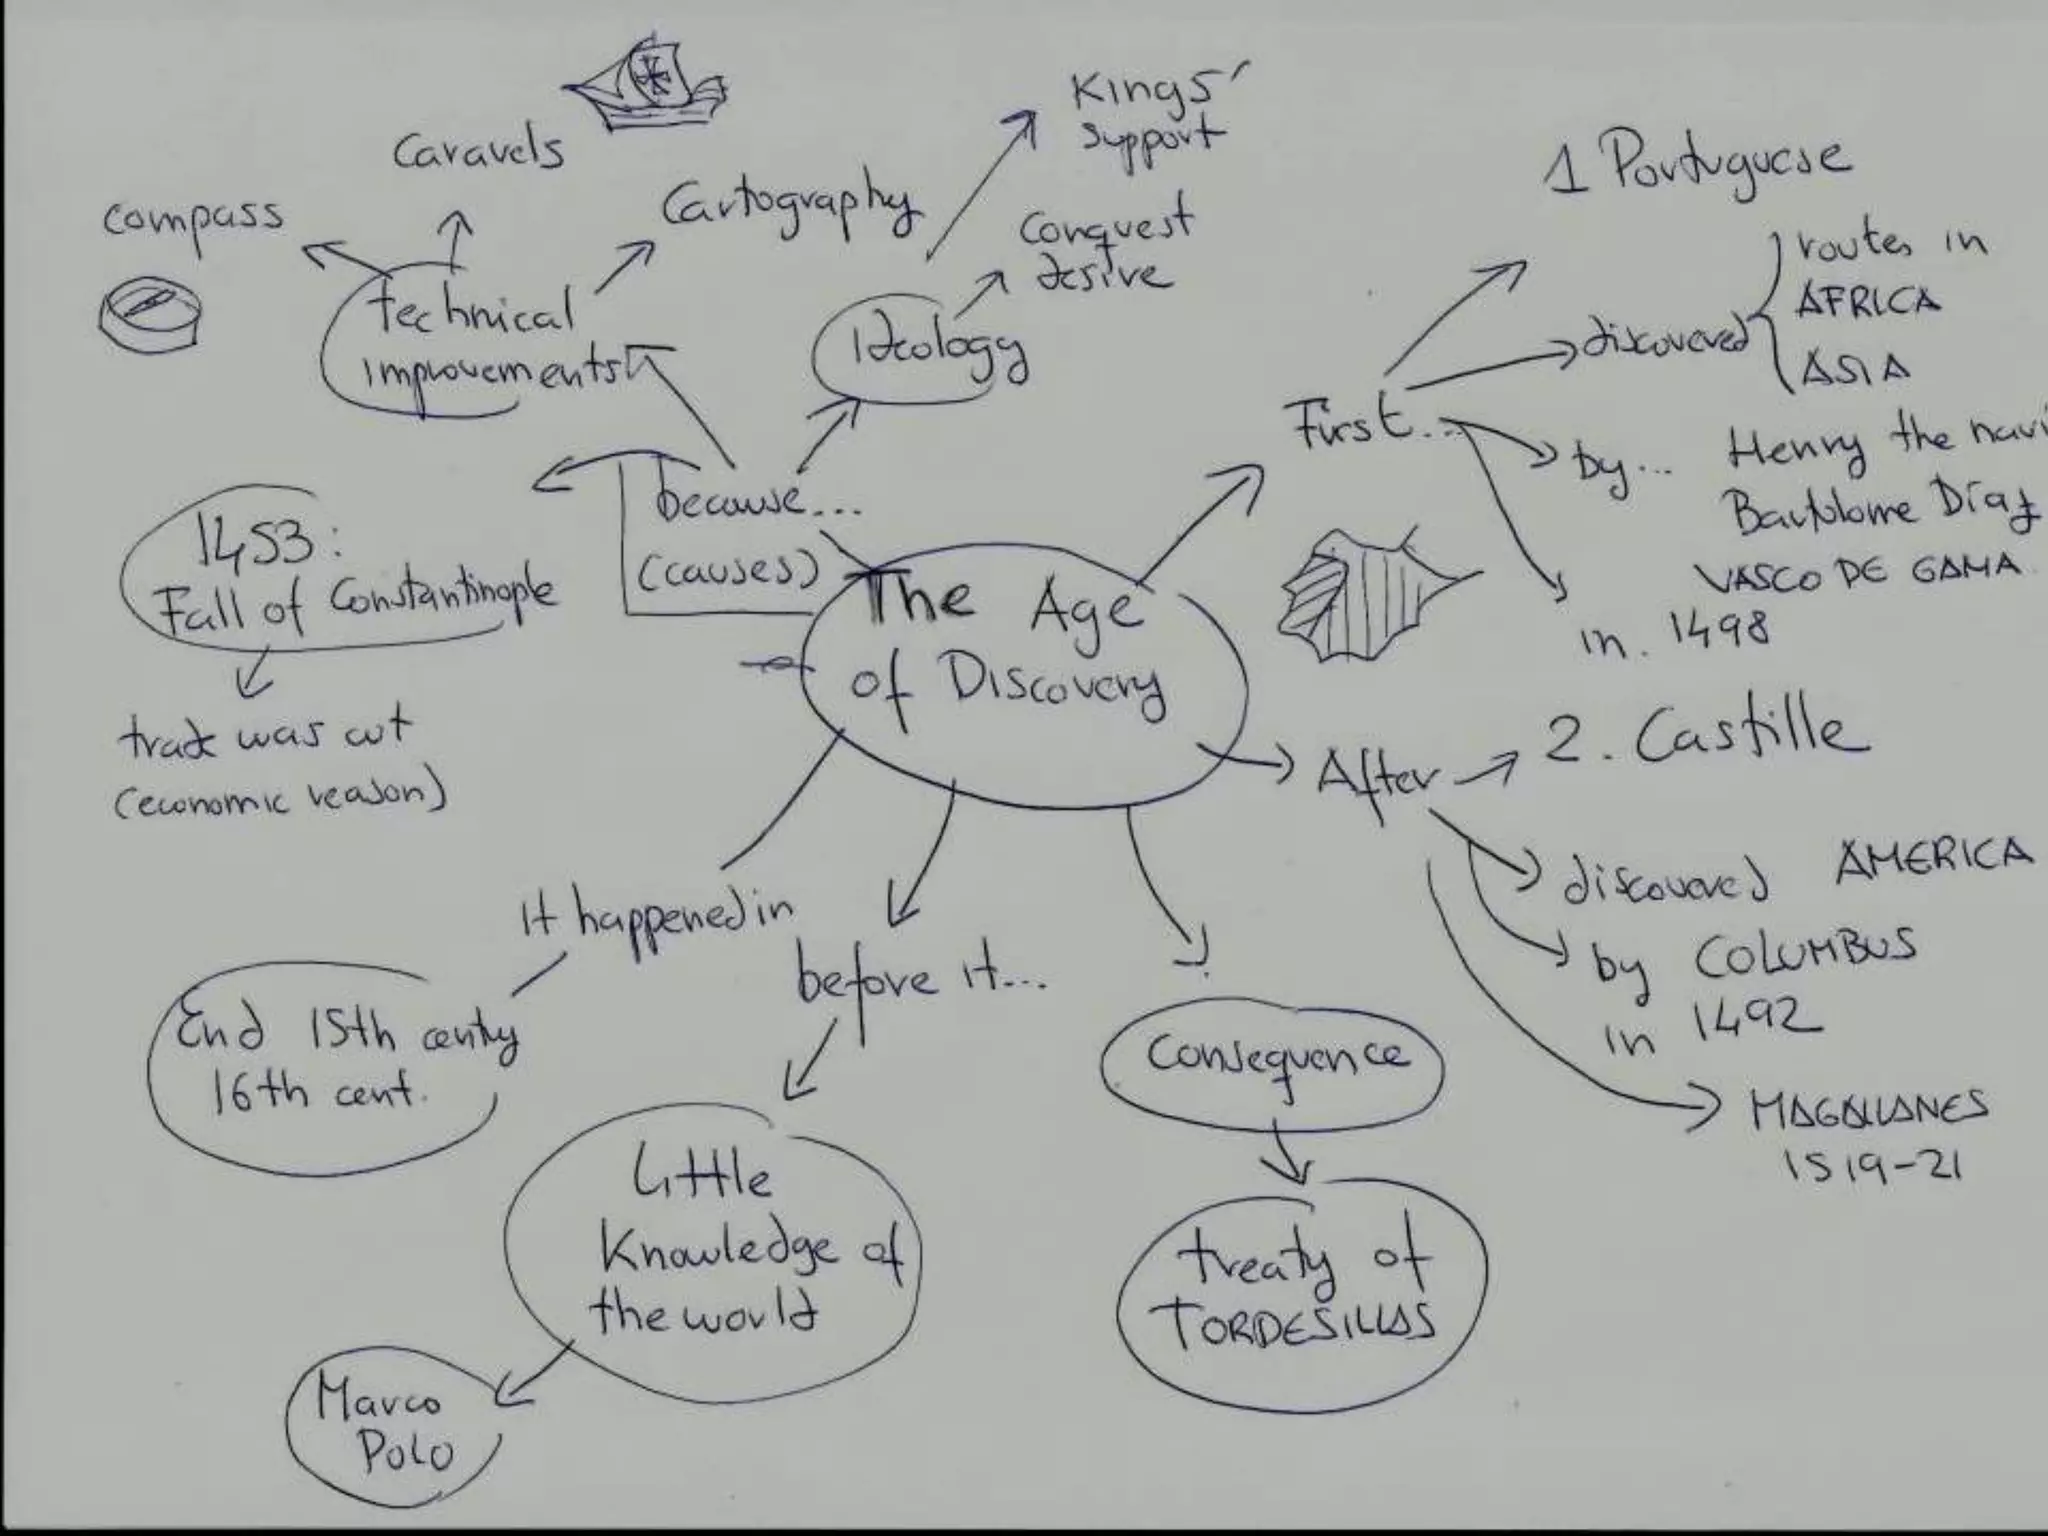 Caravels
Kings'
support
compass
Cartography
Conquest
desire
Technical
improvements
Ideology
because...
(causes)
1453:
Fall of Constantinople
trade was cut
(economic reason)
The Age
of Discovery
First...
1 Portuguese
discovered
routes in
AFRICA
ASIA
by... Henry the navi
Bartolome Díaz
VASCO DE GAMA
in. 1498
After
2. Castille
discovered AMERICA
by COLUMBUS
in 1492
MAGALLANES
1519-21
It happened in
End 15th century
16th cent.
before it...
Little
Knowledge of
the world
Marco
Polo
Consequence
treaty of
TORDESILLAS